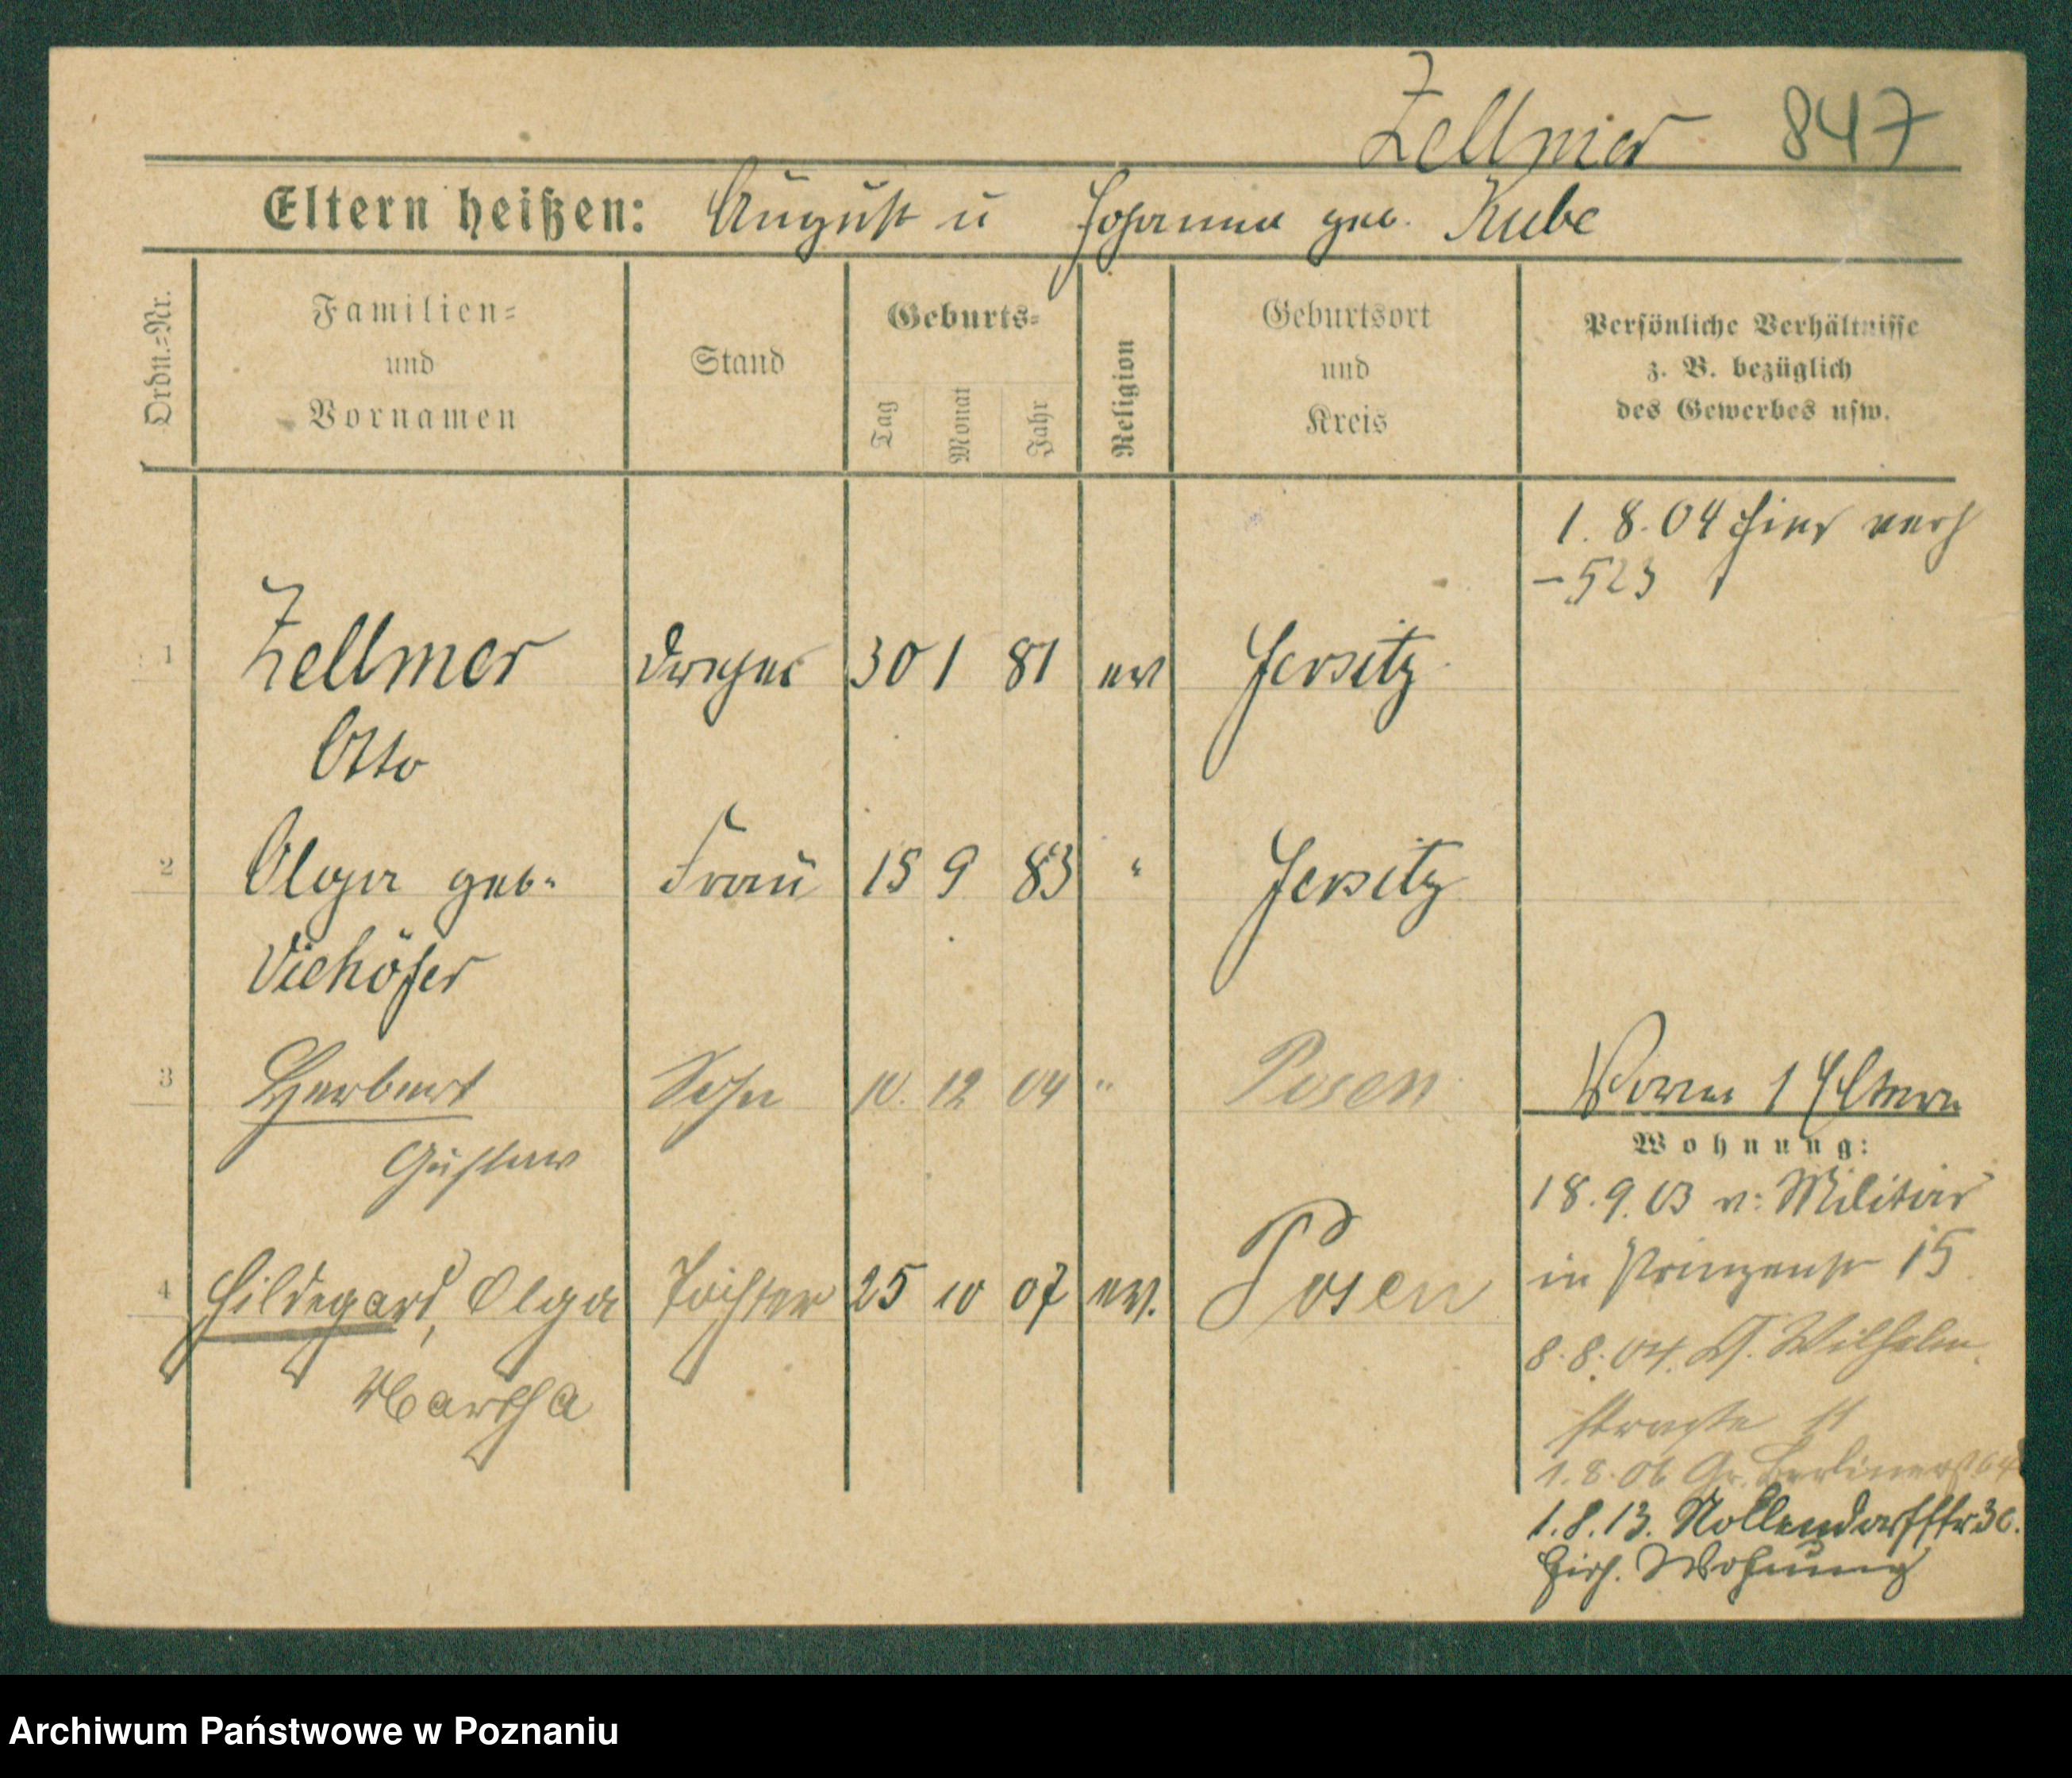 Zellmer 847
Eltern heißen: August u Johanna geb. Kube
Ordn.-Nr.
Familien-
und
Vornamen
Stand
Geburts-
Tag Monat Jahr
Religion
Geburtsort
und
Kreis
Persönliche Verhältnisse
z. B. bezüglich
des Gewerbes usw.
1. 8. 04 hier verh
- 523
1 Zellmer Dreher 30 1 81 ev Jersitz
Otto
2 Olga geb. Frau 15 9 83 " Jersitz
Viehöfer
3 Herbert Sohn 10. 12 04 " Posen
Gustav
4 Hildegard, Olga Tochter 25 10 07 ev. Posen
Martha
1 Eltern
Wohnung:
18. 9. 03 v: Militär
in Prinzenstr 15
8. 8. 04. Wilhelm
straße 11
1. 8. 06 Gr. Berlinerst
1. 8. 13. Nollendorfstr 30.
Wohnung
Archiwum Państwowe w Poznaniu